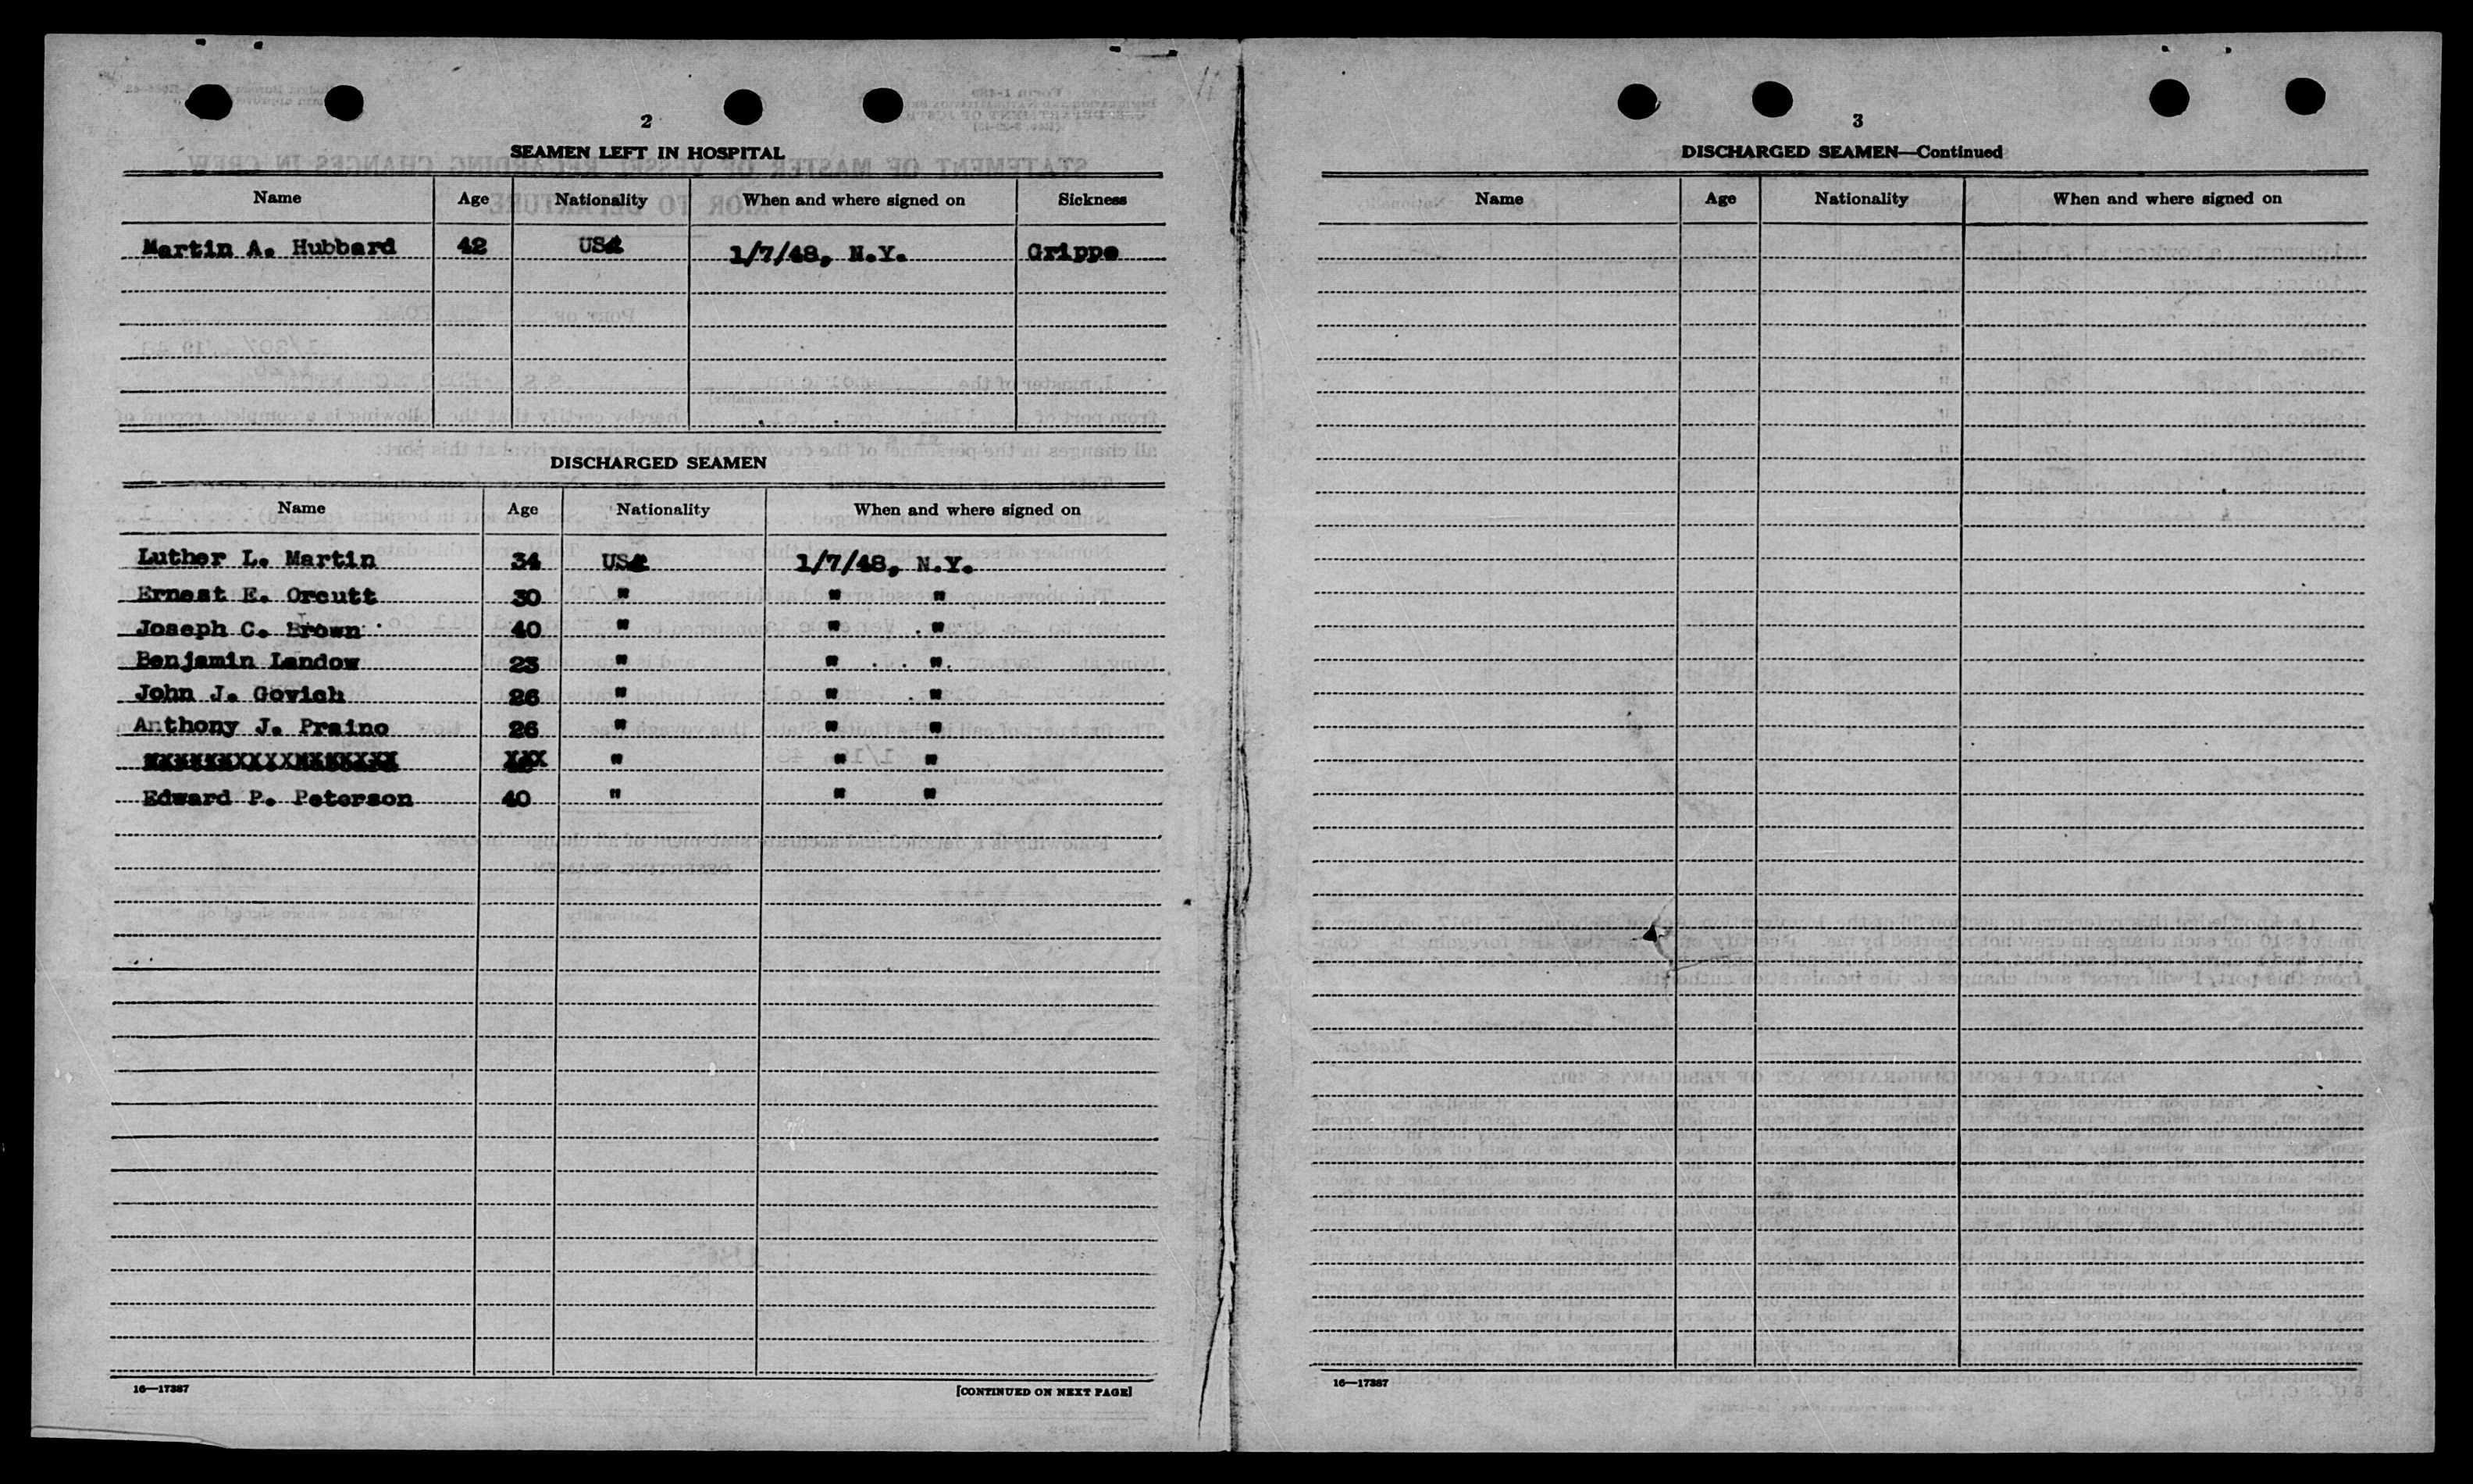 2
SEAMEN LEFT IN HOSPITAL
Name Age Nationality When and where signed on Sickness
Martin A. Hubbard 42 USA 1/7/48, N.Y. Grippe
DISCHARGED SEAMEN
Name Age Nationality When and where signed on
Luther L. Martin 34 USA 1/7/48, N.Y.
Ernest E. Orcutt 30 " " "
Joseph C. Brown 40 " " "
Benjamin Landow 23 " " "
John J. Govich 26 " " "
Anthony J. Praino 26 " " "
" " "
Edward P. Peterson 40 " " "
16—17387 [CONTINUED ON NEXT PAGE]
3
DISCHARGED SEAMEN—Continued
Name Age Nationality When and where signed on
16—17387